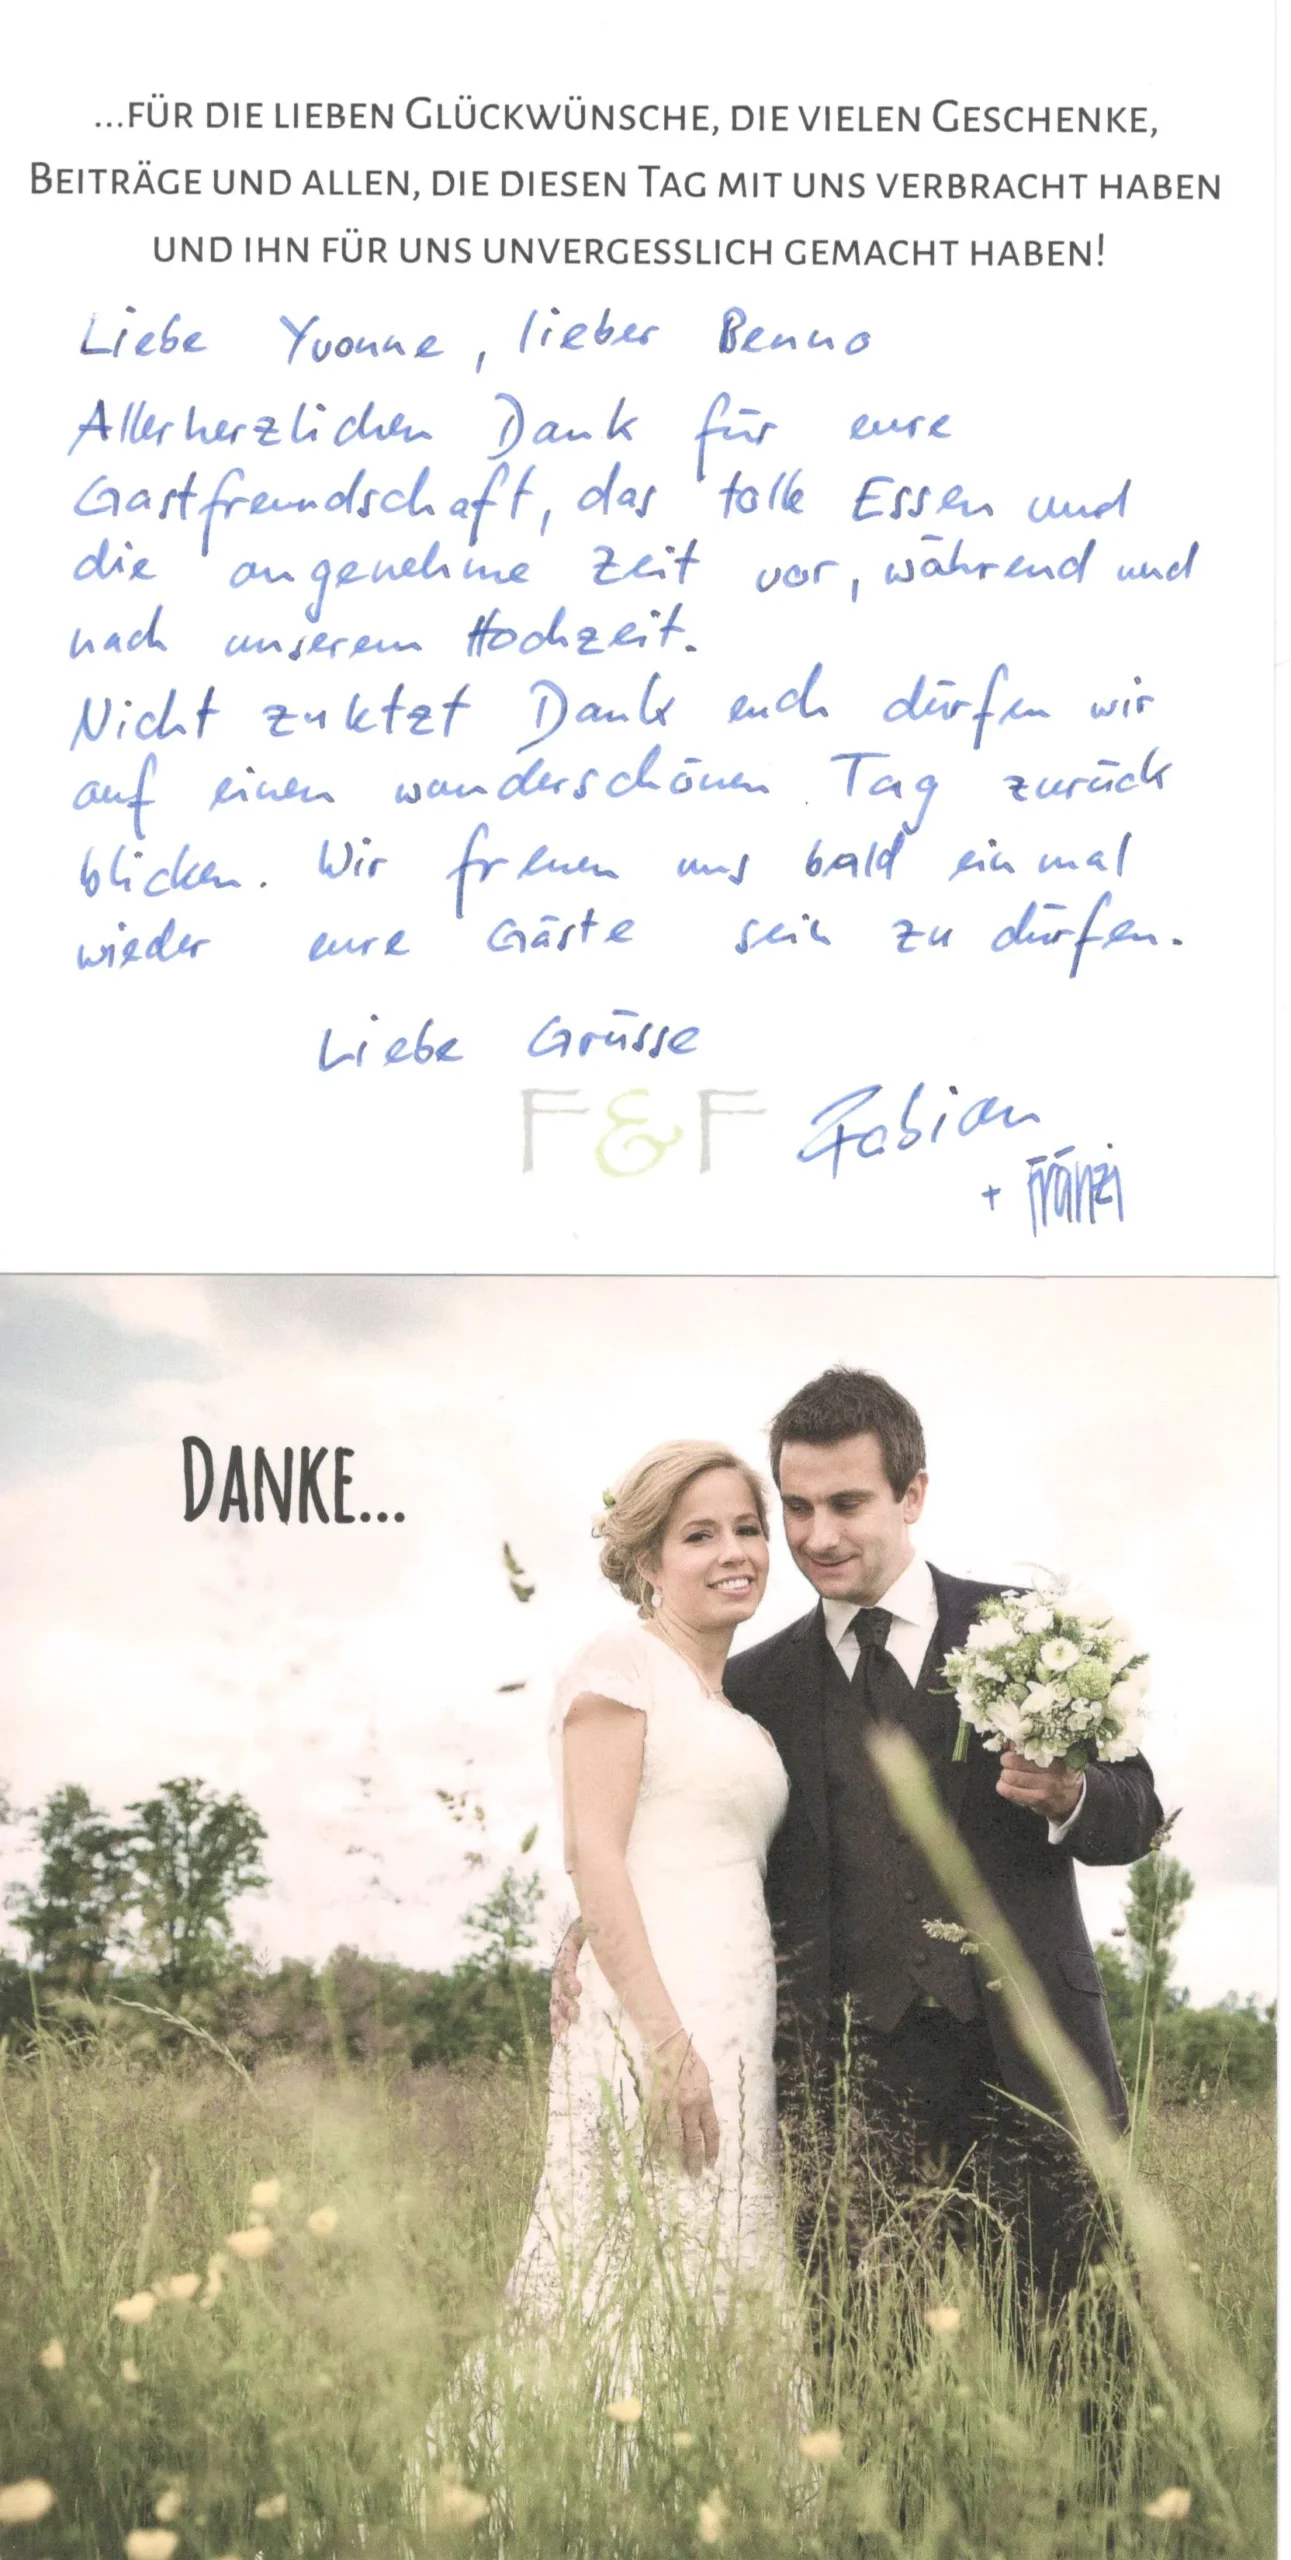 ...für die lieben Glückwünsche, die vielen Geschenke,
Beiträge und allen, die diesen Tag mit uns verbracht haben
und ihn für uns unvergesslich gemacht haben!
Liebe Yvonne, lieber Benno
Allerherzlichen Dank für eure
Gastfreundschaft, das tolle Essen und
die angenehme Zeit vor, während und
nach unserem Hochzeit.
Nicht zuletzt Dank euch dürfen wir
auf einen wunderschönen Tag zurück
blicken. Wir freuen uns bald einmal
wieder eure Gäste sein zu dürfen.
Liebe Grüsse
F&F Fabian
+ Fränzi
DANKE...